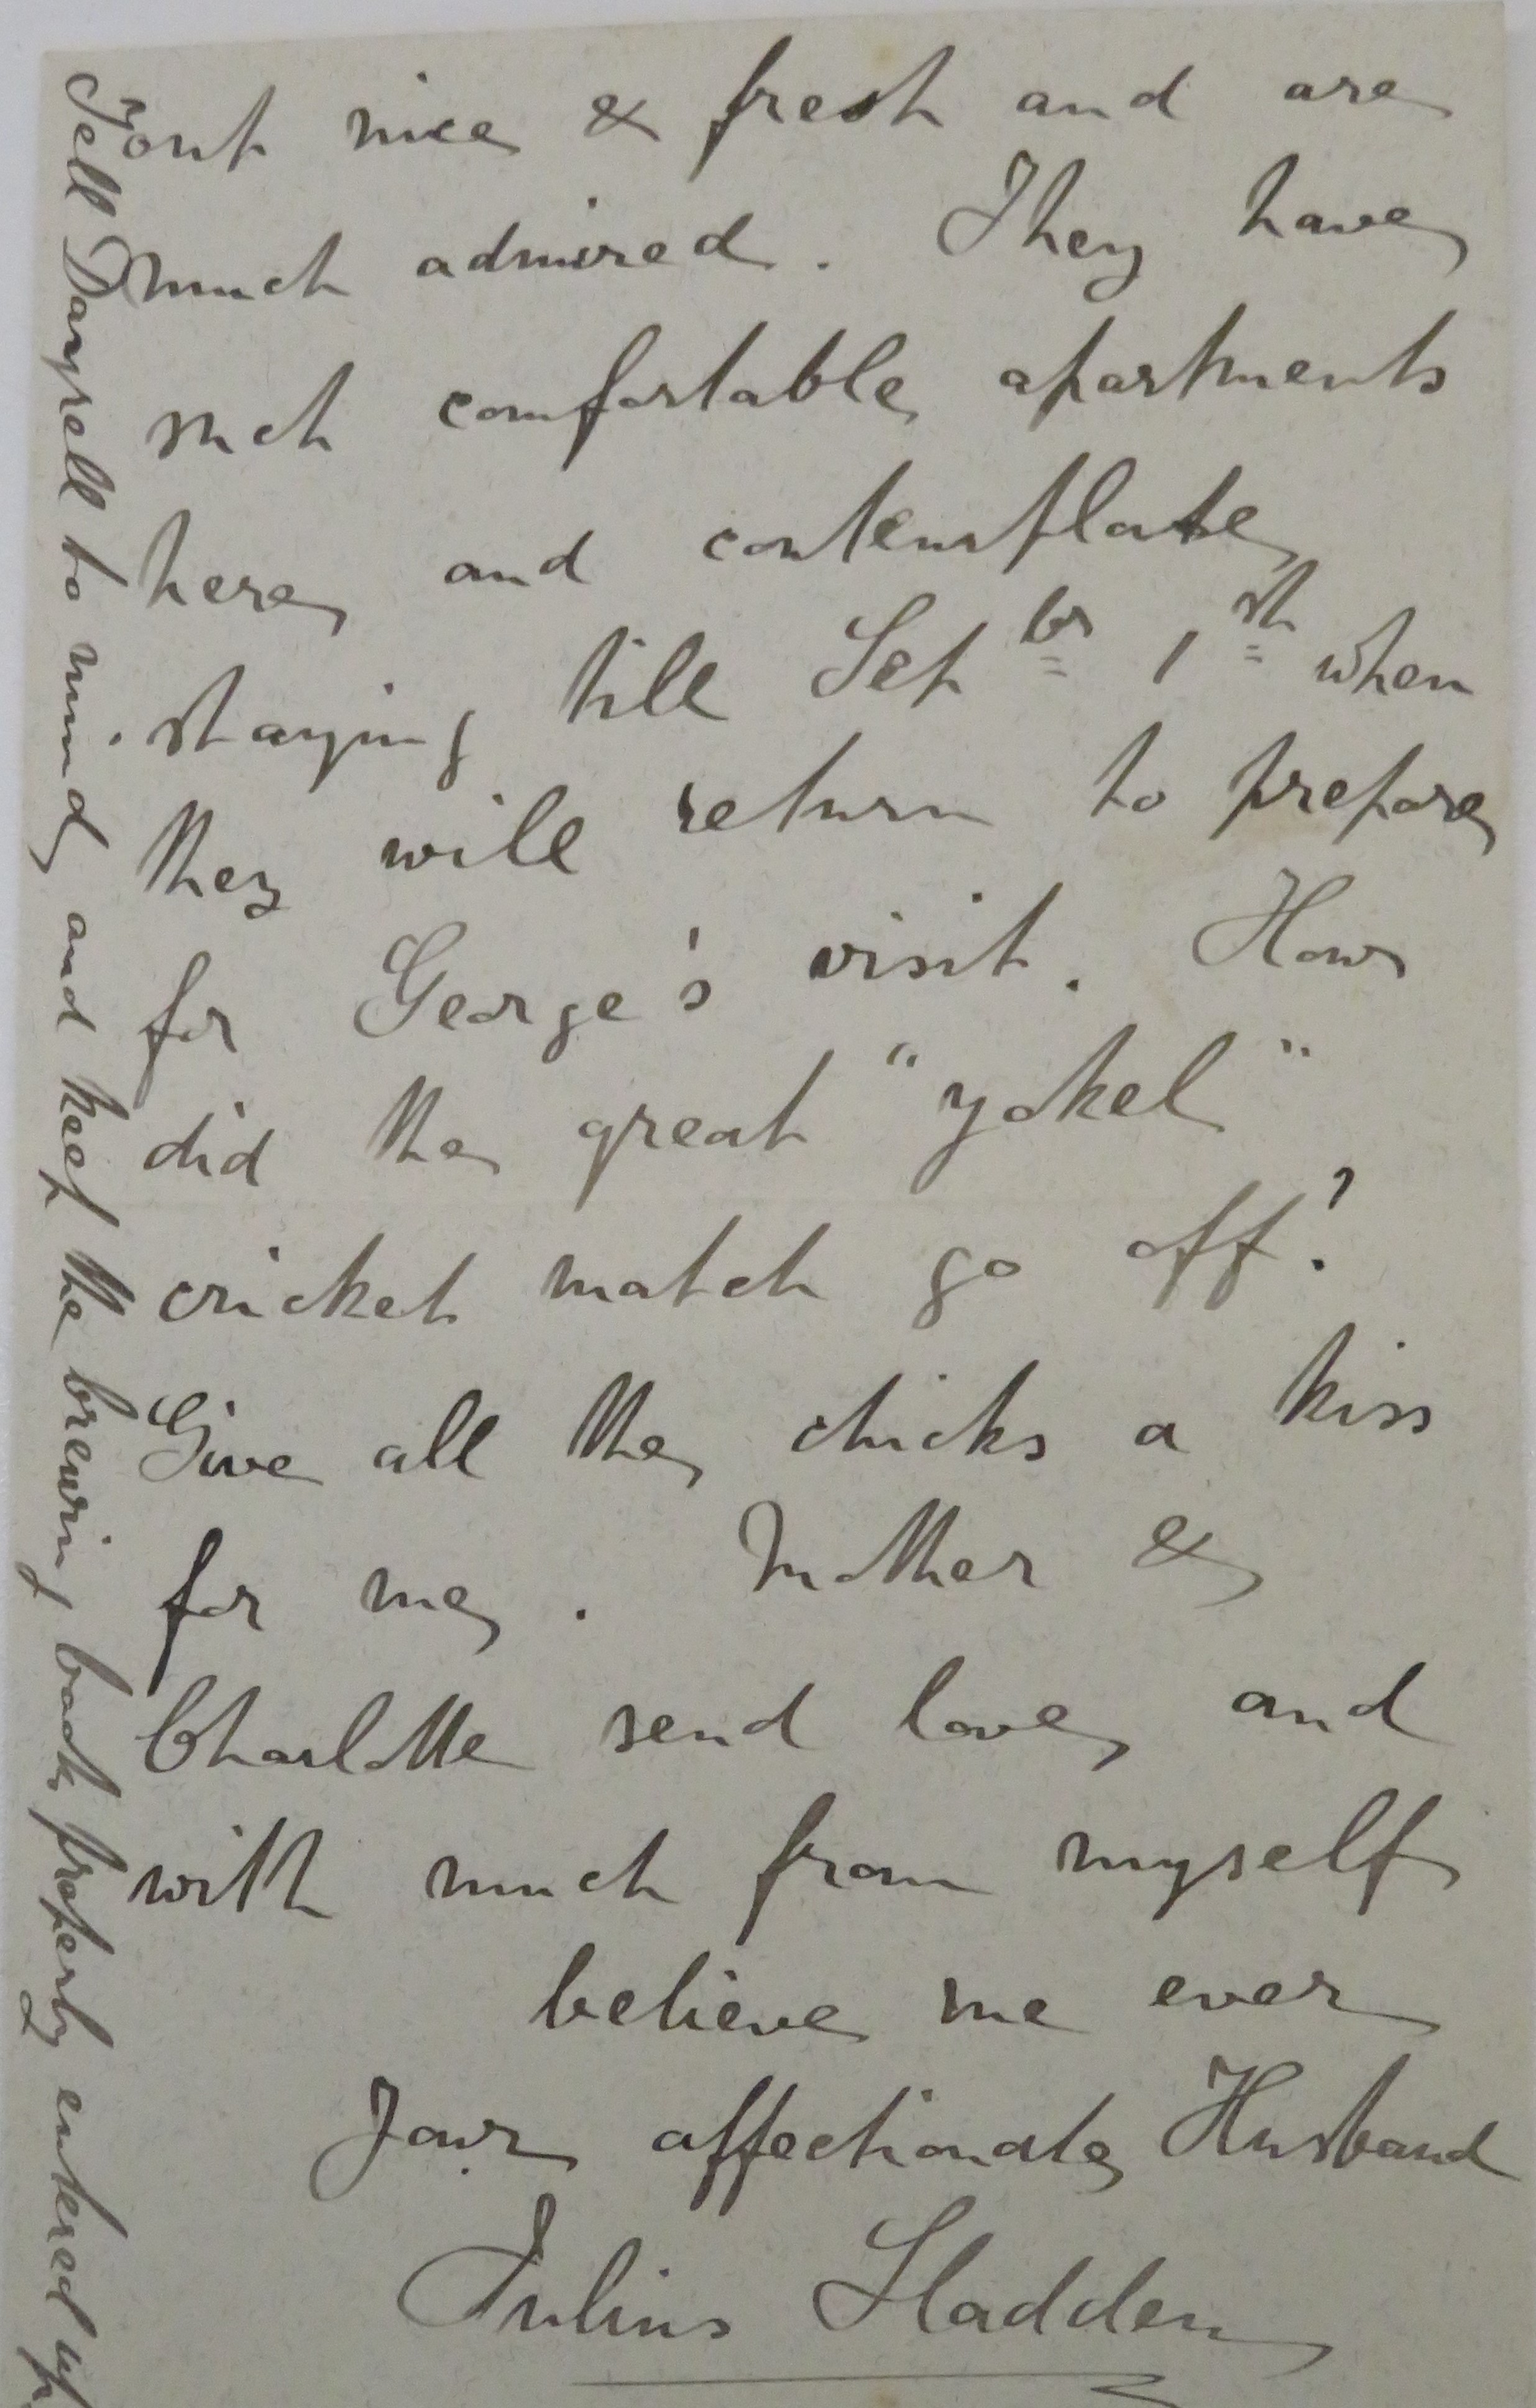 out nice & fresh and are
much admired. They have
such comfortable apartments
here and contemplate
staying till Septbr 1st when
they will return to prepare
for George's visit. How
did the great "yokel"
cricket match go off?
Give all the chicks a kiss
for me. Mother &
Charlotte send love and
with much from myself
believe me ever
Your affectionate Husband
Julius Sladden
Tell Dangrell to mind and keep the brewing book properly entered up.